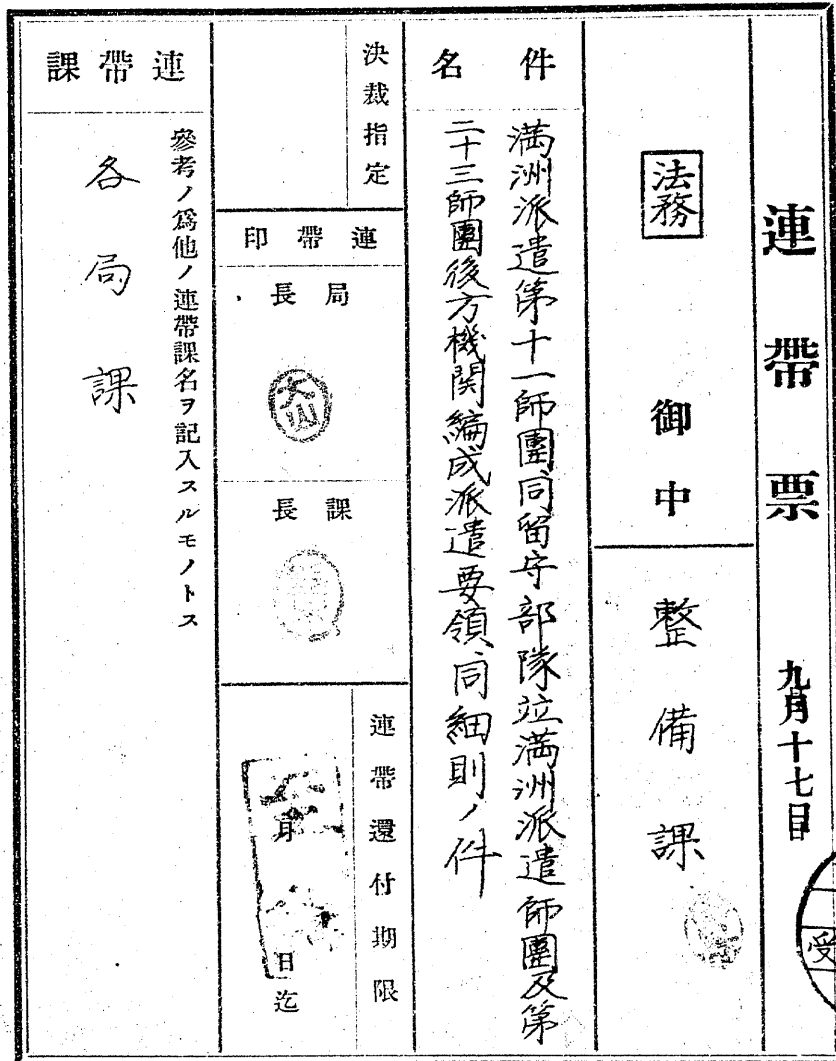 連帶票
九月十七日
受
法務
御中
整備課
件名
満洲派遣第十一師團、同留守部隊竝満洲派遣師團及第
二十三師團後方機関編成派遣要領、同細則ノ件
決裁指定
連帶印
局長
大山
課長
連帶還付期限
月
日迄
連帶課
參考ノ爲他ノ連帶課名ヲ記入スルモノトス
各局課